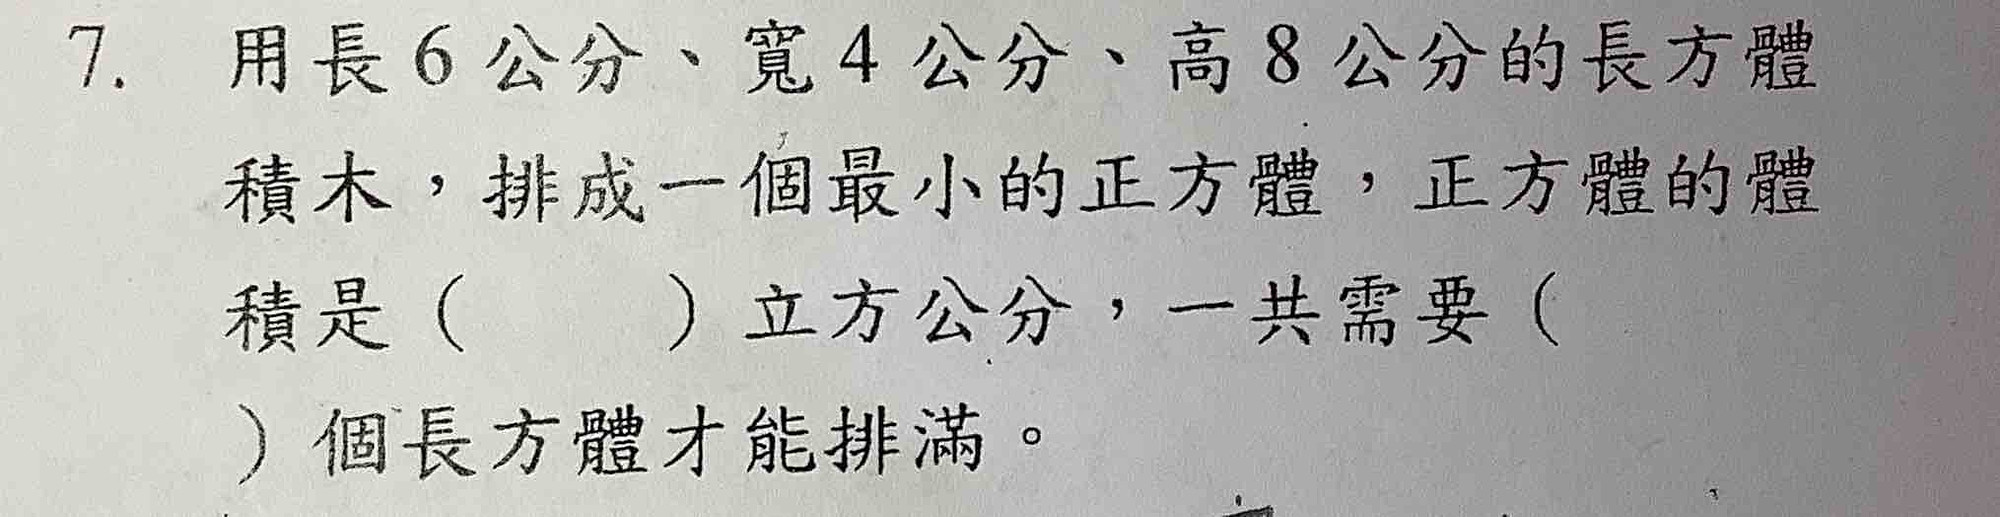 7. 用長6公分、寬4公分、高8公分的長方體
積木，排成一個最小的正方體，正方體的體
積是（　　）立方公分，一共需要（
）個長方體才能排滿。